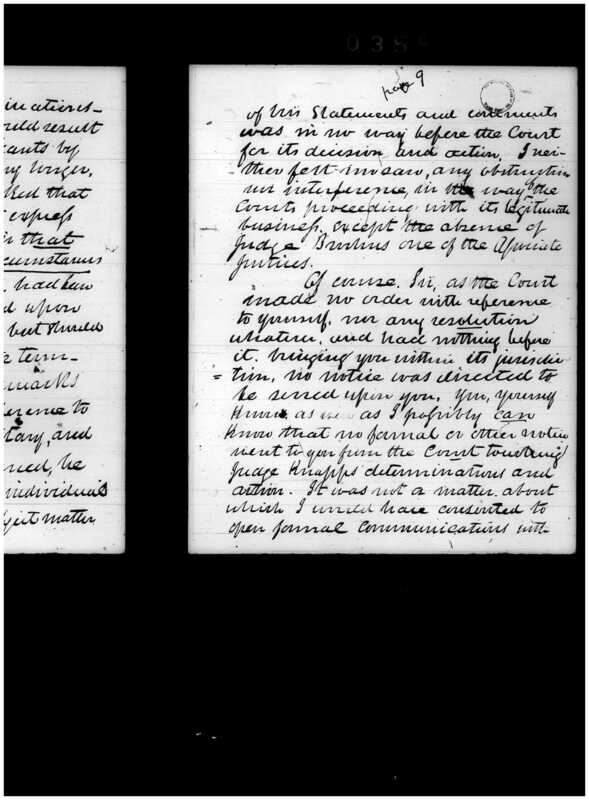 0385
inations-
ould result
cants by
ny longer,
ked that
express
is that
cumstances
had been
d upon
but should
e term-
marks
erence to
tary, and
ned, he
individuals
bject matter
page 9
of his Statements and comments
was in no way before the Court
for its decision and action. I nei-
ther felt nor saw, any obstruction
nor interference, in the way of the
Courts proceeding with its legitimate
business, except the absence of
Judge one of the Associate
Justices.
Of course, Sir, as the Court
made no order with reference
to yourself, nor any resolution
whatever, and had nothing before
it, bringing you within its jurisdic
=tion, no notice was directed to
be served upon you. You, yourself
know, as well as I possibly can
know that no formal or other notice
went to you from the Court touching
Judge Knapps' determinations and
action. It was not a matter about
which I would have consented to
open formal communications with